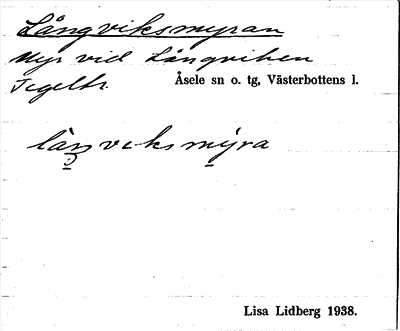 Långviksmyran
Myr vid Långviken
Tegeltr.
Åsele sn o. tg, Västerbottens l.
Lisa Lidberg 1938.